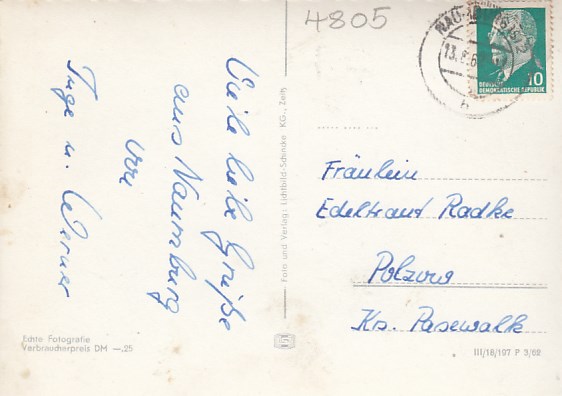 4805
Viele liebe Grüße
aus Naumburg
von
Inge u. Werner
Echte Fotografie
Verbraucherpreis DM —.25
Foto und Verlag: Lichtbild-Schincke KG., Zeitz
DEUTSCHE
DEMOKRATISCHE REPUBLIK
10
NAUMBURG
b
Fräulein
Edeltraut Radke
Polzow
Krs. Pasewalk
III/18/197 P 3/62